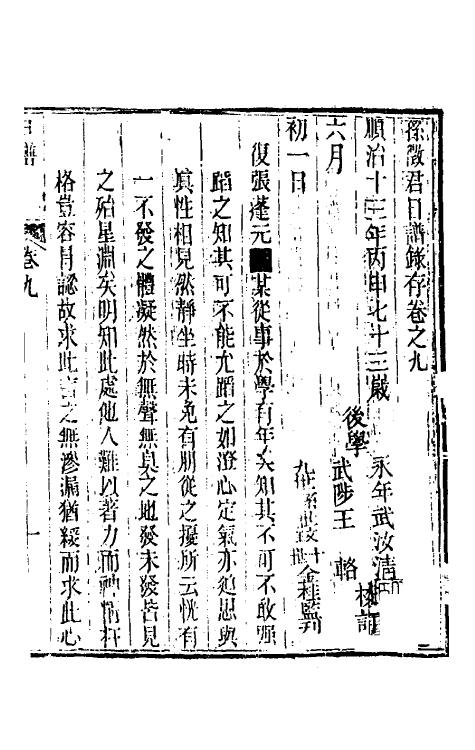 孫徵君日譜錄存卷之九
順治十三年丙申七十三歲
後學 永年武汝清 武陟王輅 校訂
六月
初一日
復張蓬元 某從事於學有年矣知其不可不敢强
蹈之知其可不能允蹈之如澄心定氣亦迫思與
眞性相見然靜坐時未免有朋從之擾所云恍有
一不發之體凝然於無聲無臭之地發未發皆見
之殆星淵矣明知此處他人難以著力而
格豈容冐認故求此言之無滲漏猶緩而求此心
日譜
卷九
一